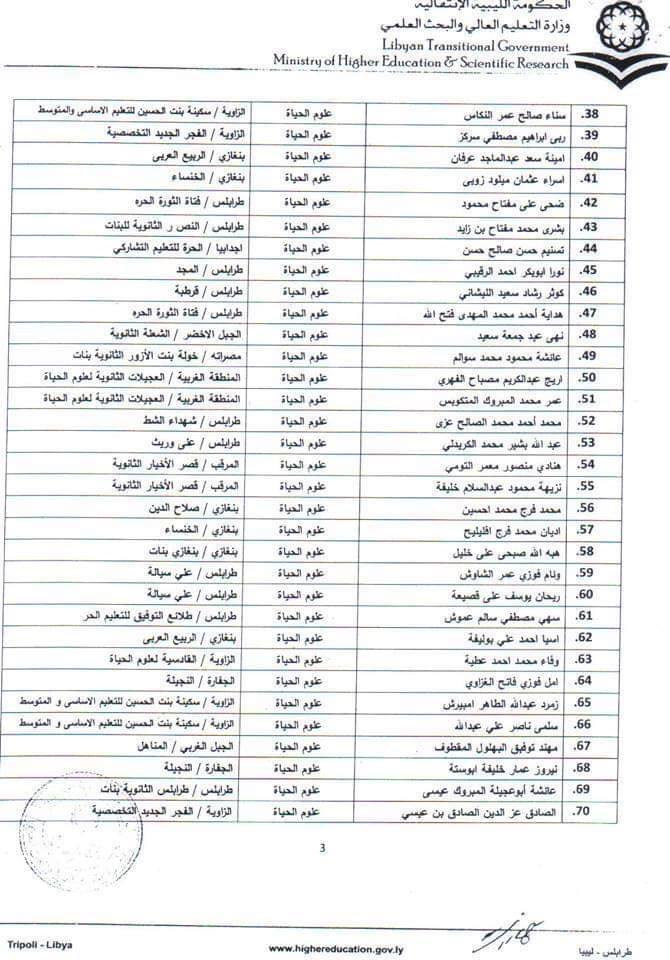 الحكومة الليبية الإنتقالية
وزارة التعليم العالي والبحث العلمي
Libyan Transitional Government
Ministry of Higher Education & Scientific Research
38. سناء صالح عمر النكاس علوم الحياة الزاوية / سكينة بنت الحسين للتعليم الاساسى والمتوسط
39. ربى ابراهيم مصطفي سركز علوم الحياة الزاوية / الفجر الجديد التخصصية
40. امينة سعد عبدالماجد عرفان علوم الحياة بنغازي / الربيع العربى
41. اسراء عثمان ميلود زوبى علوم الحياة بنغازي / الخنساء
42. ضحى على مفتاح محمود علوم الحياة طرابلس / فتاة الثورة الحره
43. بشرى محمد مفتاح بن زايد علوم الحياة طرابلس / النصر الثانوية للبنات
44. تسنيم حسن صالح حسن علوم الحياة اجدابيا / الحرة للتعليم التشاركي
45. نورا ابوبكر احمد الرقيبي علوم الحياة طرابلس / المجد
46. كوثر رشاد سعيد الليشاني علوم الحياة طرابلس / قرطبة
47. هداية أحمد محمد المهدى فتح الله علوم الحياة طرابلس / فتاة الثورة الحره
48. نهى عيد جمعة سعيد علوم الحياة الجبل الاخضر / الشعلة الثانوية
49. عائشة محمود محمد سوالم علوم الحياة مصراته / خولة بنت الأزور الثانوية بنات
50. اريج عبدالكريم مصباح الفهري علوم الحياة المنطقة الغربية / العجيلات الثانوية لعلوم الحياة
51. عمر محمد المبروك المتكويس علوم الحياة المنطقة الغربية / العجيلات الثانوية لعلوم الحياة
52. محمد أحمد محمد الصالح عزى علوم الحياة طرابلس / شهداء الشط
53. عبد الله بشير محمد الكريدلي علوم الحياة طرابلس / على وريث
54. هنادي منصور معمر التومي علوم الحياة المرقب / قصر الأخيار الثانوية
55. نزيهة محمود عبدالسلام خليفة علوم الحياة المرقب / قصر الأخيار الثانوية
56. محمد فرج محمد احسين علوم الحياة بنغازي / صلاح الدين
57. اديان محمد فرج افليليح علوم الحياة بنغازي / الخنساء
58. هبه الله صبحى على خليل علوم الحياة بنغازي / بنغازي بنات
59. ونام فوزي عمر الشاوش علوم الحياة طرابلس / علي سيالة
60. ريحان يوسف على قصيعة علوم الحياة طرابلس / علي سيالة
61. سهي مصطفي سالم عموش علوم الحياة طرابلس / طلائع التوفيق للتعليم الحر
62. اسيا احمد علي بوليفة علوم الحياة بنغازي / الربيع العربى
63. وفاء محمد احمد عطية علوم الحياة الزاوية / القادسية لعلوم الحياة
64. امل فوزي فاتح الغزاوي علوم الحياة الجفارة / النجيلة
65. زمرد عبدالله الطاهر امبيرش علوم الحياة الزاوية / سكينة بنت الحسين للتعليم الاساسى و المتوسط
66. سلمى ناصر علي عبدالله علوم الحياة الزاوية / سكينة بنت الحسين للتعليم الاساسى و المتوسط
67. مهند توفيق البهلول المقطوف علوم الحياة الجبل الغربي / المناهل
68. نيروز عمار خليفة ابوستة علوم الحياة الجفارة / النجيلة
69. عائشة أبوعجيلة المبروك عيسى علوم الحياة طرابلس / طرابلس الثانوية بنات
70. الصادق عز الدين الصادق بن عيسي علوم الحياة الزاوية / الفجر الجديد التخصصية
3
Tripoli - Libya www.highereducation.gov.ly طرابلس - ليبيا